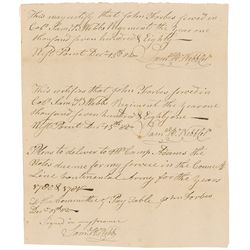 This may certify that John Forbes served in
Colo. Saml. B. Webbs Regiment the year one
thousand seven hundred & Eighty
West Point Decr. 15th 82
Saml B Webb Col
This certifies that John Forbes served in
Colo. Saml. B. Webbs Regiment the year one
thousand seven hundred & Eighty one
West Point Decr. 15th 82
Saml B Webb Col
to deliver to Mr the
Notes due me for my service in the Connect
Line Continental Army for the Years
1780 & 1781
To the Committee of Pay Table John Forbes
Decr. 15th 82
Signed in presence
Saml B Webb